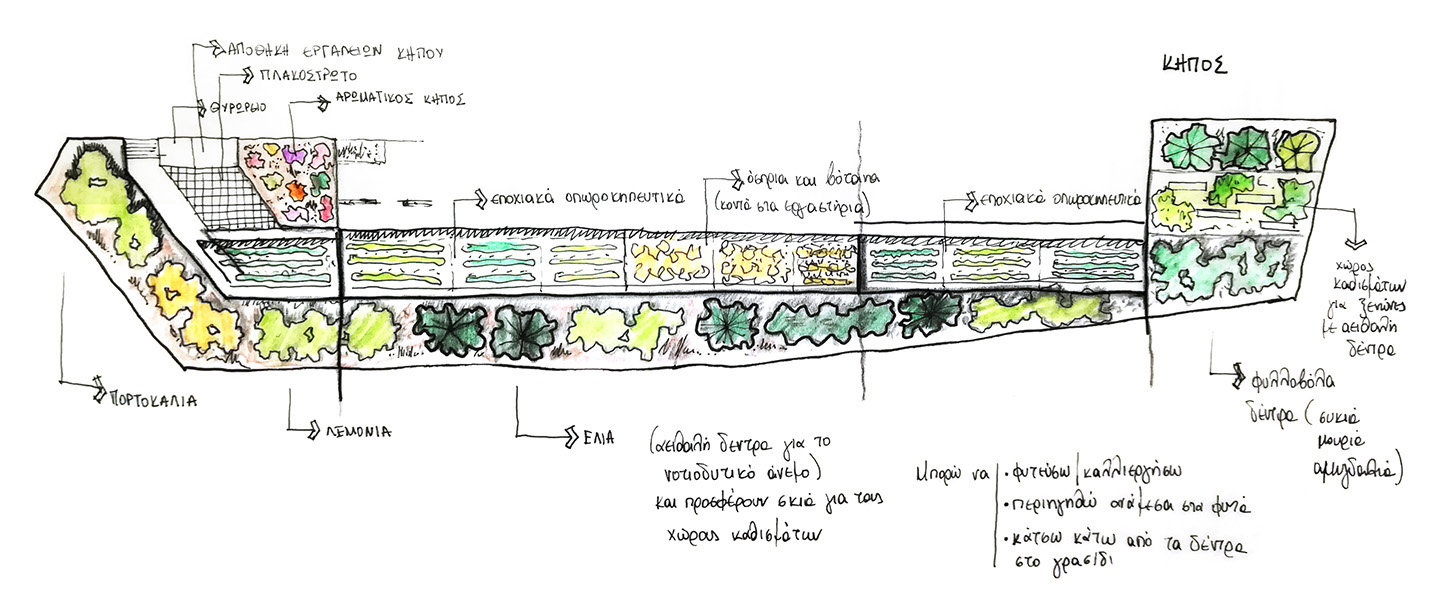 ΑΠΟΘΗΚΗ ΕΡΓΑΛΕΙΩΝ ΚΗΠΟΥ
ΠΛΑΚΟΣΤΡΩΤΟ
ΘΥΡΩΡΕΙΟ
ΑΡΩΜΑΤΙΚΟΣ ΚΗΠΟΣ
ΚΗΠΟΣ
εποχιακά οπωροκηπευτικά
όσπρια και βότανα
(κοντά στα εργαστήρια)
εποχιακά οπωροκηπευτικά
χώρος
καθισμάτων
για ξενώνες
με αειθαλή
δέντρα
φυλλοβόλα
δέντρα (συκιά
μουριά
αμυγδαλιά)
ΠΟΡΤΟΚΑΛΙΑ
ΛΕΜΟΝΙΑ
ΕΛΙΑ
(αειθαλή δεντρα για το
νοτιοδυτικό άνεμο)
και προσφέρουν σκιά για τους
χώρους καθισμάτων
Μπορώ να
• φυτεύσω/καλλιεργήσω
• περιηγηθώ ανάμεσα στα φυτά
• κάτσω κάτω από τα δέντρα
στο γρασίδι